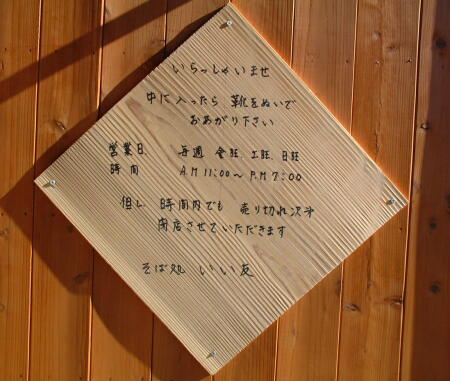 いらっしゃいませ
中に入ったら 靴をぬいで
おあがり下さい
営業日 毎週 金曜、土曜、日曜
時間 AM11:00〜PM7:00
但し 時間内でも 売り切れ次第
閉店させていただきます
そば処 いい友